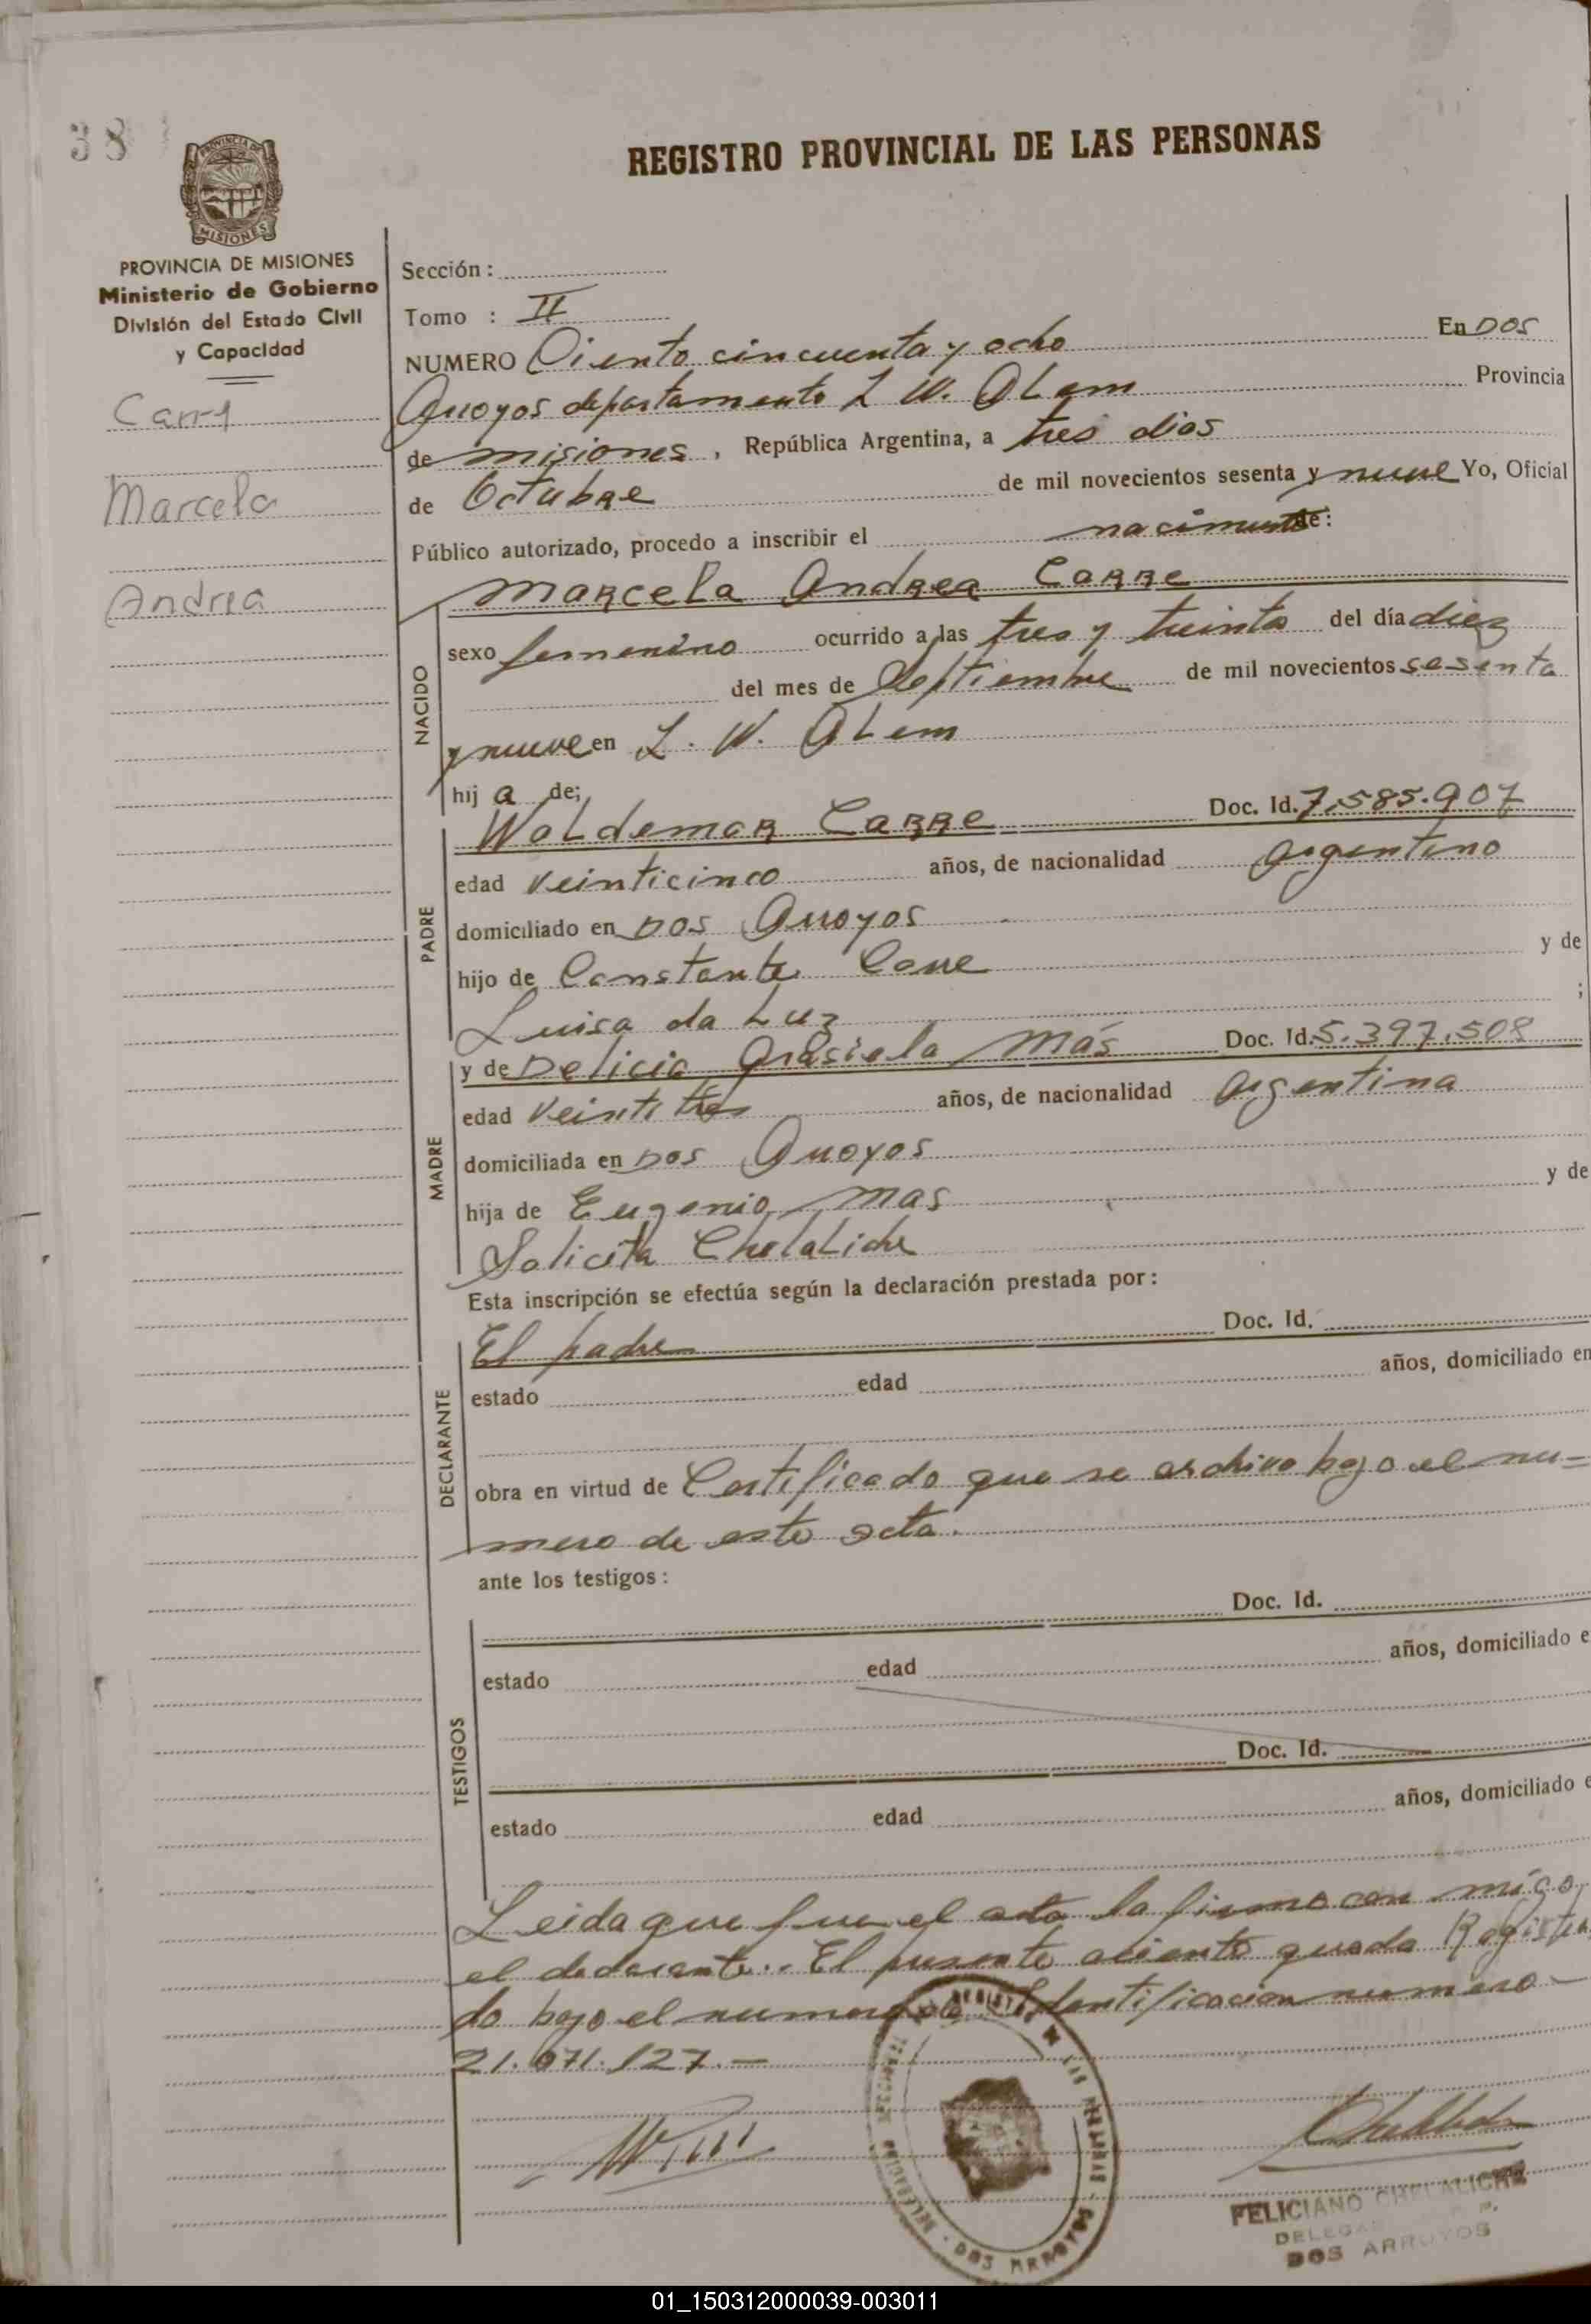 38
PROVINCIA DE
MISIONES
REGISTRO PROVINCIAL DE LAS PERSONAS
PROVINCIA DE MISIONES
Ministerio de Gobierno
División del Estado Civil
y Capacidad
Carre
Marcela
Andrea
Sección :
Tomo : II
NUMERO Ciento cincuenta y ocho En DOS
Arroyos departamento L N. ALem Provincia
de misiones , República Argentina, a tres dias
de Octubre de mil novecientos sesenta y nueve Yo, Oficial
Público autorizado, procedo a inscribir el nacimiento de:
NACIDO
Marcela Andrea Carre
sexo femenino ocurrido a las tres y treinta del día diez
del mes de Septiembre de mil novecientos sesenta
y nueve en L. N. ALem
hij a de;
PADRE
Waldemar Carre Doc. Id. 7.585.907
edad veinticinco años, de nacionalidad argentino
domiciliado en DOS Arroyos
hijo de Constante Carre y de
Luisa da Luz ;
MADRE
y de Delicia Grasiela Más Doc. Id. 5.397.508
edad Veinti tres años, de nacionalidad argentina
domiciliada en DOS Arroyos
hija de Eugenio Mas y de
Chelaliche
Esta inscripción se efectúa según la declaración prestada por :
DECLARANTE
El padre Doc. Id.
estado edad años, domiciliado en
obra en virtud de Certificado que se archiva bajo el nu-
mero de esta acta.
ante los testigos :
TESTIGOS
Doc. Id.
estado edad años, domiciliado e
Doc. Id.
estado edad años, domiciliado e
Leida que fue el acta la firma con migo
el declarante.. El presente aciento queda Registra
do bajo el numero de Identificacion numero-
21.071.127.-
DOS ARROYOS
FELICIANO CHELALICHE
DELEGA
DOS ARROYOS
01_150312000039-003011